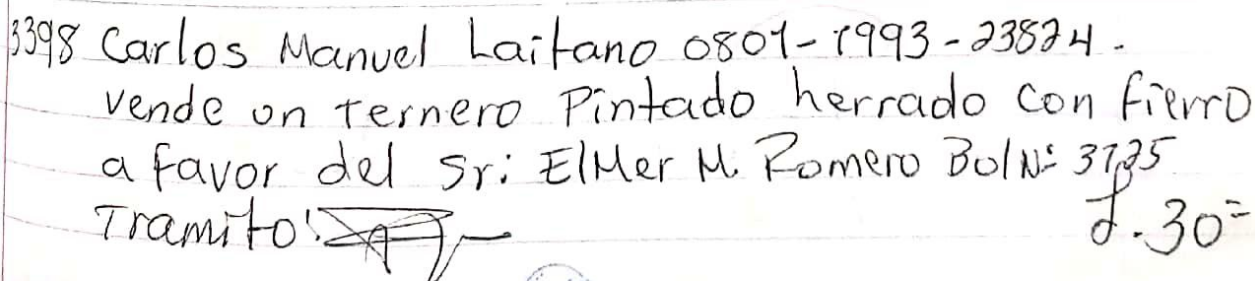 3398 Carlos Manuel Laitano 0801-1993-23824.
vende un Ternero Pintado herrado con fierro
a favor del Sr: ElMer M. Romero Bol Nº 3725
Tramito:
L.30=